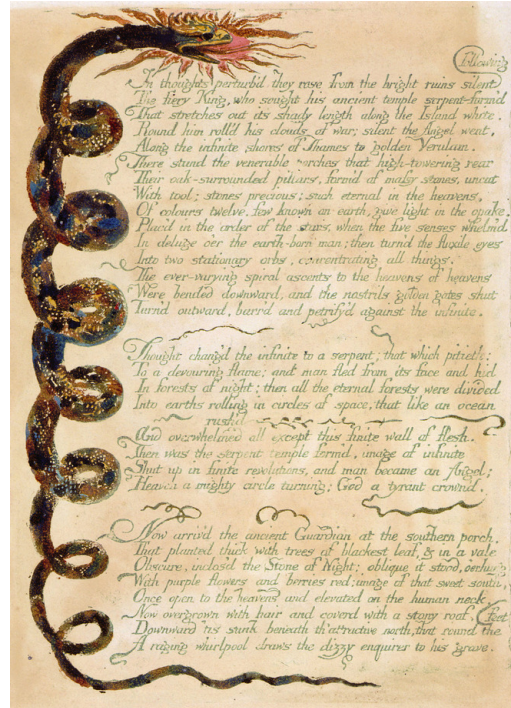 Following
In thoughts perturb'd they rave from the bright ruins silent
The fiery King, who sought his ancient temple serpent-form'd
That stretches out its shady length along the Island white.
Round him roll'd his clouds of war; silent the Angel went,
Along the infinite shores of Thames to golden Verulam.
There stand the venerable porches that high-towering rear
Their oak-surrounded pillars, form'd of massy stones, uncut
With tool; stones precious; such eternal in the heavens,
Of colours twelve, few known on earth, give light in the opake,
Plac'd in the order of the stars, when the five senses whelm'd
In deluge o'er the earth-born man; then turn'd the fluxile eyes
Into two stationary orbs, concentrating all things.
The ever-varying spiral ascents to the heavens of heavens
Were bended downward, and the nostrils golden gates shut
Turn'd outward, barr'd and petrify'd against the infinite.
Thought chang'd the infinite to a serpent; that which pitieth:
To a devouring flame; and man fled from its face and hid
In forests of night; then all the eternal forests were divided
Into earths rolling in circles of space, that like an ocean
rush'd
And overwhelmed all except this finite wall of flesh.
Then was the serpent temple form'd, image of infinite
Shut up in finite revolutions, and man became an Angel;
Heaven a mighty circle turning; God a tyrant crown'd.
Now arriv'd the ancient Guardian at the southern porch,
That planted thick with trees of blackest leaf, & in a vale
Obscure, inclos'd the Stone of Night; oblique it stood, o'erhung
With purple flowers and berries red; image of that sweet south,
Once open to the heavens and elevated on the human neck,
Now overgrown with hair and cover'd with a stony roof,
Downward 'tis sunk beneath th' attractive north, that round the feet
A raging whirlpool draws the dizzy enquirer to his grave.